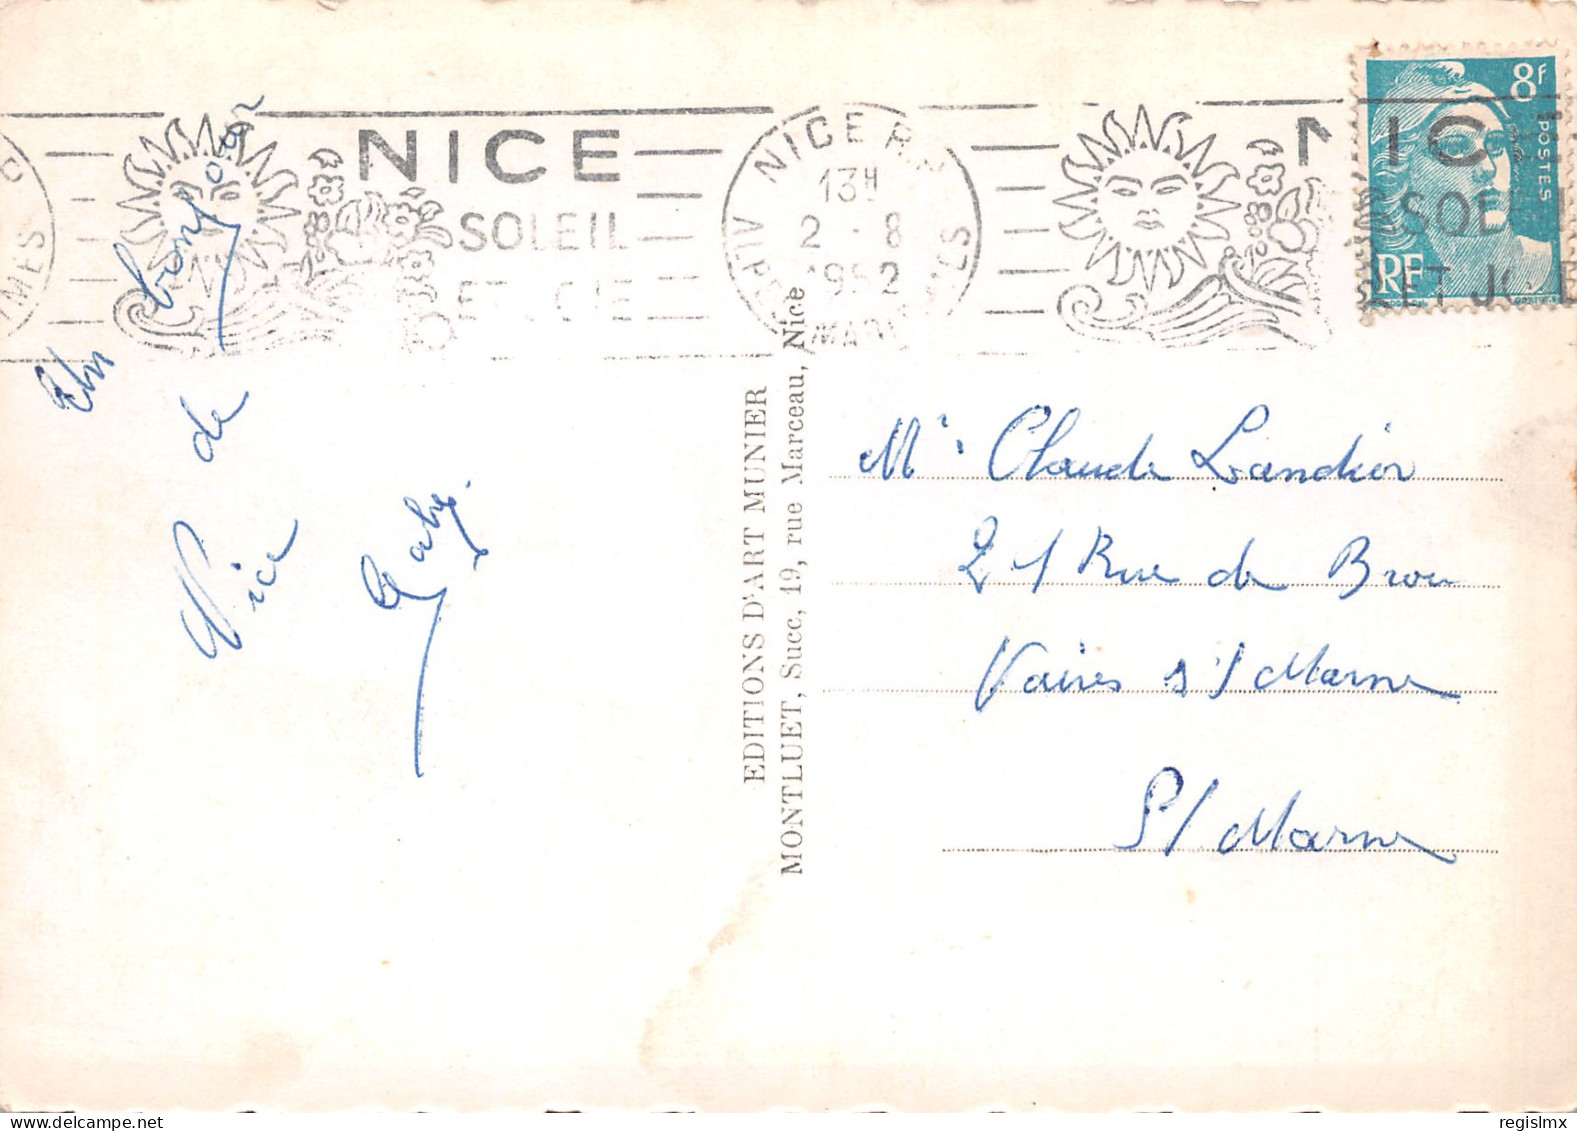 NICE
SOLEIL
ET JOIE
NICE R.P.
13H
2 - 8
1952
ALPES MARITIMES
NICE
SOLEIL
ET JOIE
8F
POSTES
RF
Un
bonjour
de
Nice
Gaby.
EDITIONS D'ART MUNIER
MONTLUET, Succ, 19, rue Marceau, Nice
Mr Claude Landior
21 Rue de Brou
Vaires s/ Marne
S/ Marne
regislmx